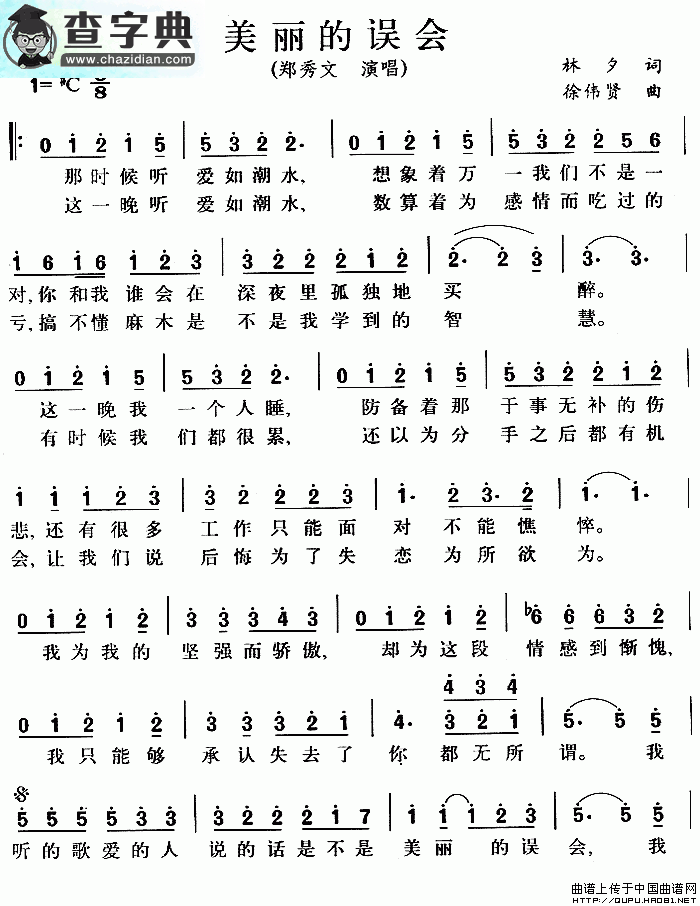 查字典
www.chazidian.com
美丽的误会
(郑秀文 演唱)
1=#C 6/8
林夕 词
徐伟贤 曲
0 1 2 1 5 5 3 2 2· 0 1 2 1 5 5 3 2 2 5 6
那时候听 爱如潮水, 想象着万 一我们不是一
这一晚听 爱如潮水, 数算着为 感情而吃过的
1 6 1 6 1 2 3 3 2 2 2 1 2 2· 2 3 3· 3·
对,你和我谁会在 深夜里孤独地 买 醉。
亏,搞不懂麻木是 不是我学到的 智 慧。
0 1 2 1 5 5 3 2 2· 0 1 2 1 5 5 3 2 2 1 2
这一晚我 一个人睡, 防备着那 于事无补的伤
有时候我 们都很累, 还以为分 手之后都有机
1 1 1 2 3 3 2 2 2 3 1· 2 3· 2 1· 1·
悲,还有很多 工作只能面 对不能憔 悴。
会,让我们说 后悔为了失 恋为所欲 为。
0 1 2 1 2 3 3 3 4 3 0 1 2 1 2 b6 6 6 3 2
我为我的 坚强而骄傲, 却为这段 情感到惭愧,
4 3 4
0 1 2 1 2 3 3 3 2 1 4· 3 2 1 5· 5· 5
我只能够 承认失去了 你都无所 谓。 我
5 5 5 5 3 3 3 2 2 2 1 7 1 1 1 2 3 5· 5 5
听的歌爱的人 说的话是不是 美丽的误 会, 我
曲谱上传于中国曲谱网
HTTP://QUPU.HAO81.NET